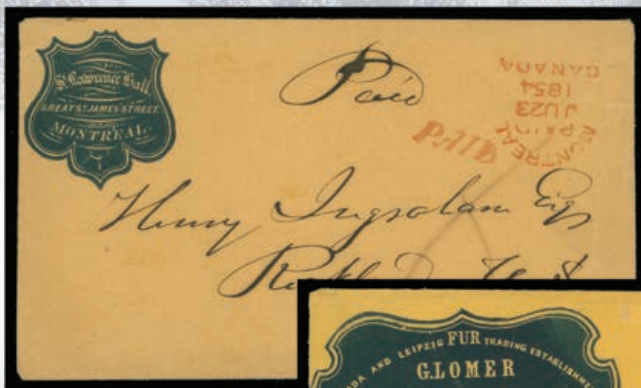 St. Lawrence Hall,
GREAT ST. JAMES STREET.
MONTREAL.
Paid
MONTREAL
PAID
JU23
1854
CANADA
PAID
Henry Esq
ADA AND LEIPZIG FUR TRADING ESTABLISHME
G.LOMER